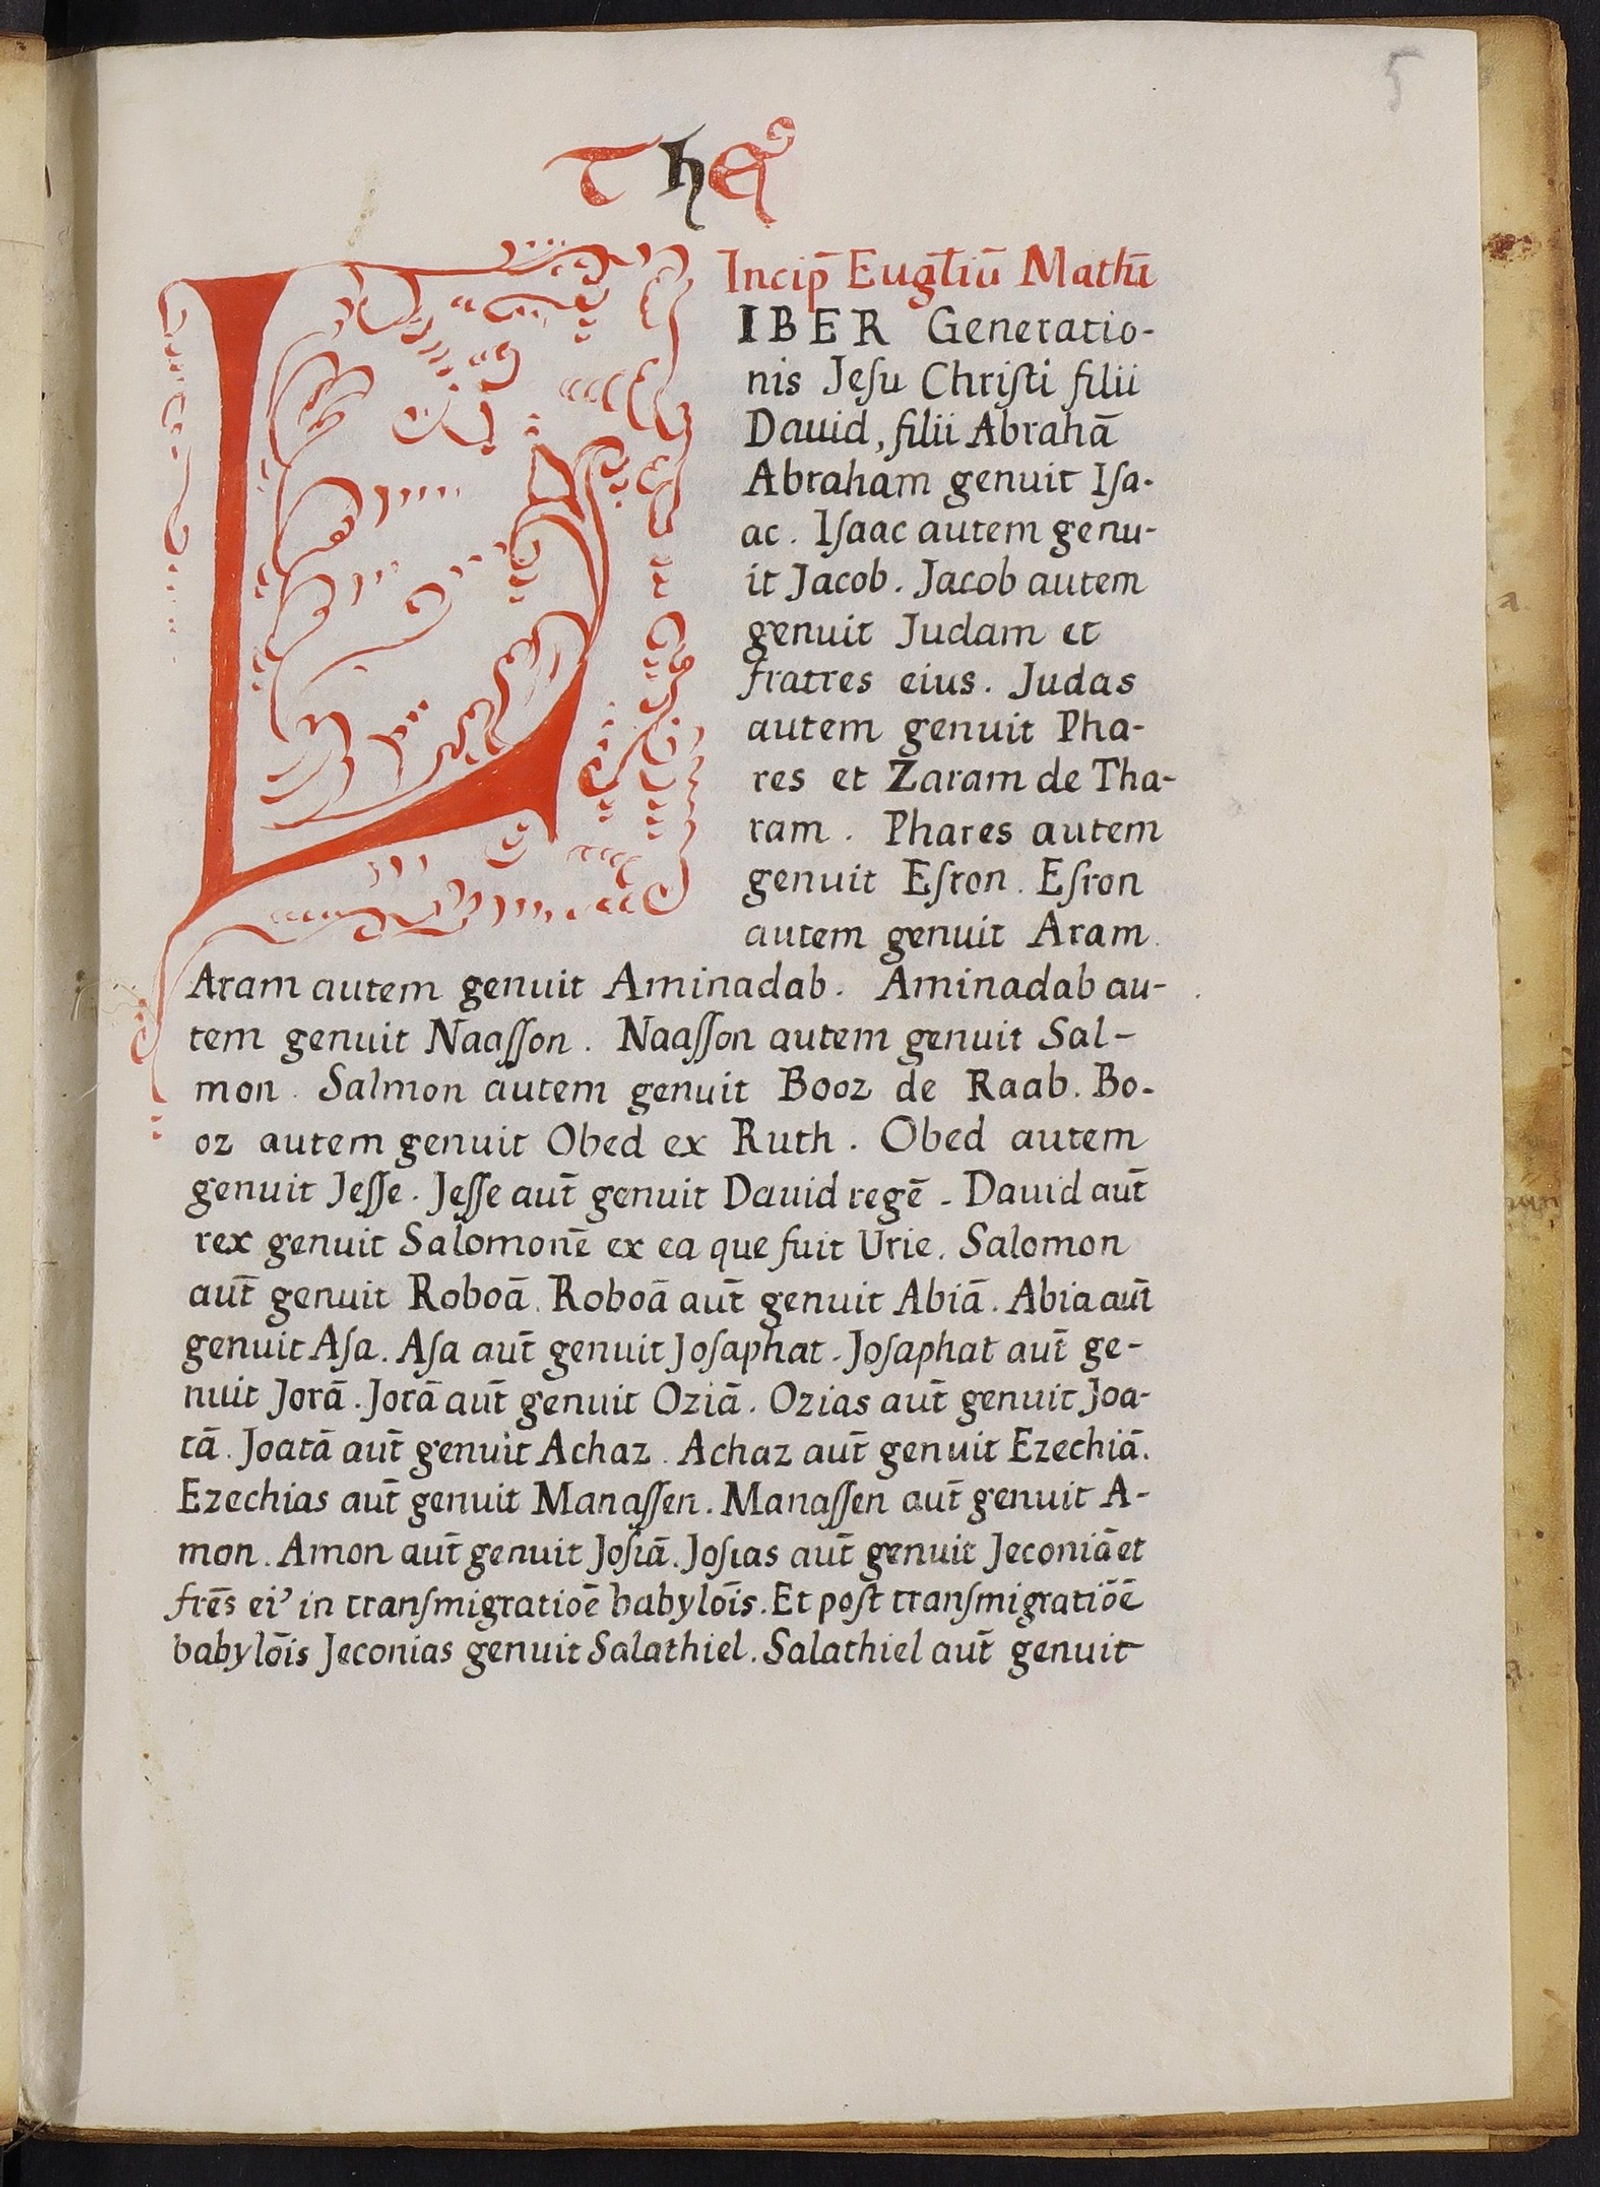 5
Theꝰ
Incip̄ Euḡliū Mathī
LIBER Generatio-
nis Jeſu Chriſti filii
Dauid, filii Abrahā
Abraham genuit Iſa-
ac. Iſaac autem genu-
it Jacob. Jacob autem
genuit Judam et
fratres eius. Judas
autem genuit Pha-
res et Zaram de Tha-
ram. Phares autem
genuit Eſron. Eſron
autem genuit Aram.
Aram autem genuit Aminadab. Aminadab au-
tem genuit Naaſſon. Naaſſon autem genuit Sal-
mon. Salmon autem genuit Booz de Raab. Bo-
oz autem genuit Obed ex Ruth. Obed autem
genuit Jeſſe. Jeſſe aut̄ genuit Dauid regē. Dauid aut̄
rex genuit Salomonē ex ea que fuit Urie. Salomon
aut̄ genuit Roboā. Roboā aut̄ genuit Abiā. Abia aut̄
genuit Aſa. Aſa aut̄ genuit Joſaphat. Joſaphat aut̄ ge-
nuit Jorā. Jorā aut̄ genuit Oziā. Ozias aut̄ genuit Joa-
tā. Joatā aut̄ genuit Achaz. Achaz aut̄ genuit Ezechiā.
Ezechias aut̄ genuit Manaſſen. Manaſſen aut̄ genuit A-
mon. Amon aut̄ genuit Joſiā. Joſias aut̄ genuit Jeconiā et
frēs eiꝰ in tranſmigratiōē babylōis. Et poſt tranſmigratiōē
babylōis Jeconias genuit Salathiel. Salathiel aut̄ genuit